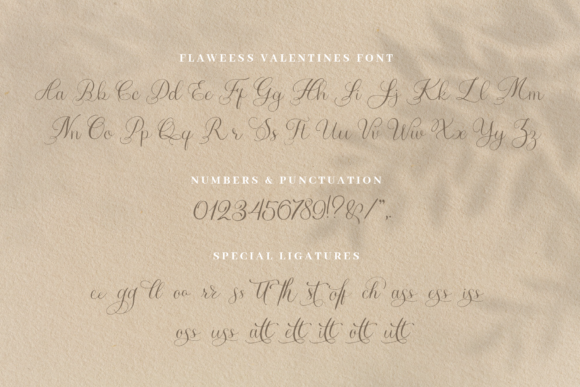 FLAWEESS VALENTINES FONT
Aa Bb Cc Dd Ee Ff Gg Hh Ii Jj Kk Ll Mm
Nn Oo Pp Qq Rr Ss Tt Uu Vv Ww Xx Yy Zz
NUMBERS & PUNCTUATION
0123456789!?&/",.
SPECIAL LIGATURES
ee gg ll oo rr ss tt th st of ch ass ess iss
oss uss att ett itt ott utt